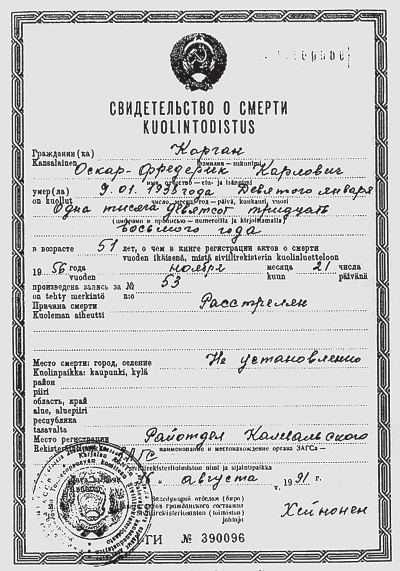 СВИДЕТЕЛЬСТВО О СМЕРТИ
KUOLINTODISTUS
Гражданин (ка) Корган
Kansalainen фамилия — sukunimi
Оскар-Фредерик Карлович
имя, отчество — etu- ja isännimi
умер(ла) 9.01.1938 года Девятого января
on kuollut число, месяц, год — päivä, kuukausi, vuosi
Одна тысяча девятсот тридцать
(цифрами и прописью — numeroilla ja kirjaimilla)
восьмого года
в возрасте 51 лет, о чем в книге регистрации актов о смерти
vuoden ikäisenä, mistä siviilirekisterin kuolinluetteloon
19 56 года ноября месяца 21 числа
vuoden kuun päivänä
произведена запись за № 53
on tehty merkintö n:o
Причина смерти Расстрелян
Kuoleman aiheutti
Место смерти: город, селение Не установлено
Kuolinpaikka: kaupunki, kylä
район
piiri
область, край
alue, aluepiiri
республика
tasavalta
Место регистрации Райотдел Калевальского
Rekisteröimispaikka наименование и местонахождение органа ЗАГСа —
ЗАГС
siviilirekisteritoimiston nimi ja sijaintipaikka
августа 1991 г.
Заведующий отделом (бюро)
актов гражданского состояния Хейнонен
siviilirekisteriosaston (toimiston)
johtaja
ГИ № 390096